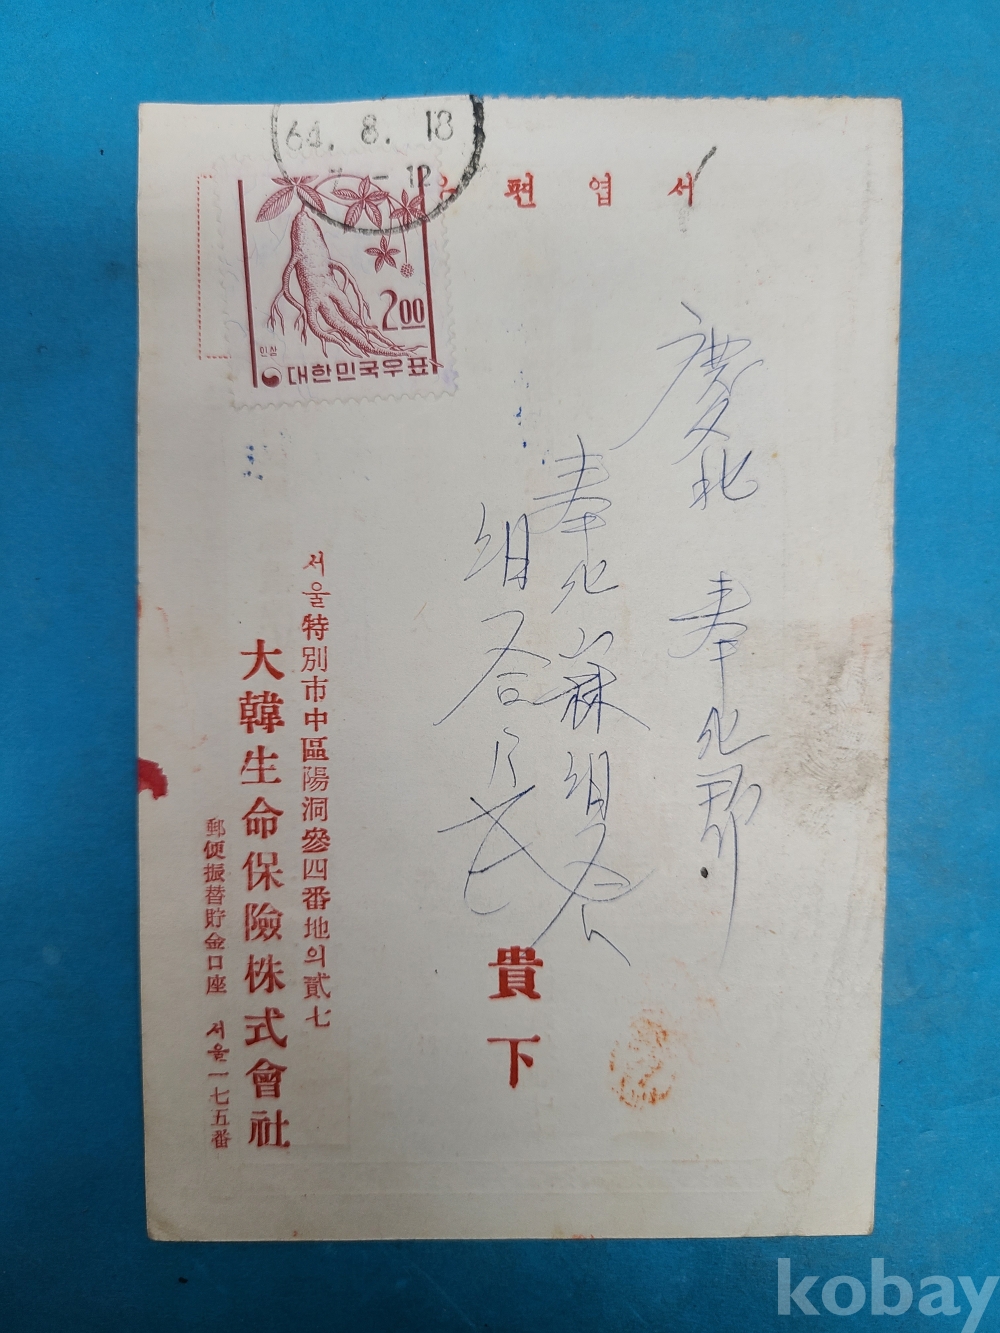 64. 8. 18
- 12
서 엽 편 우
2.00
인삼
대한민국우표
慶北 奉化郡
奉化
組合長
貴下
서울特別市中區陽洞參四番地의貳七
大韓生命保險株式會社
郵便振替貯金口座 서울一七五番
kobay